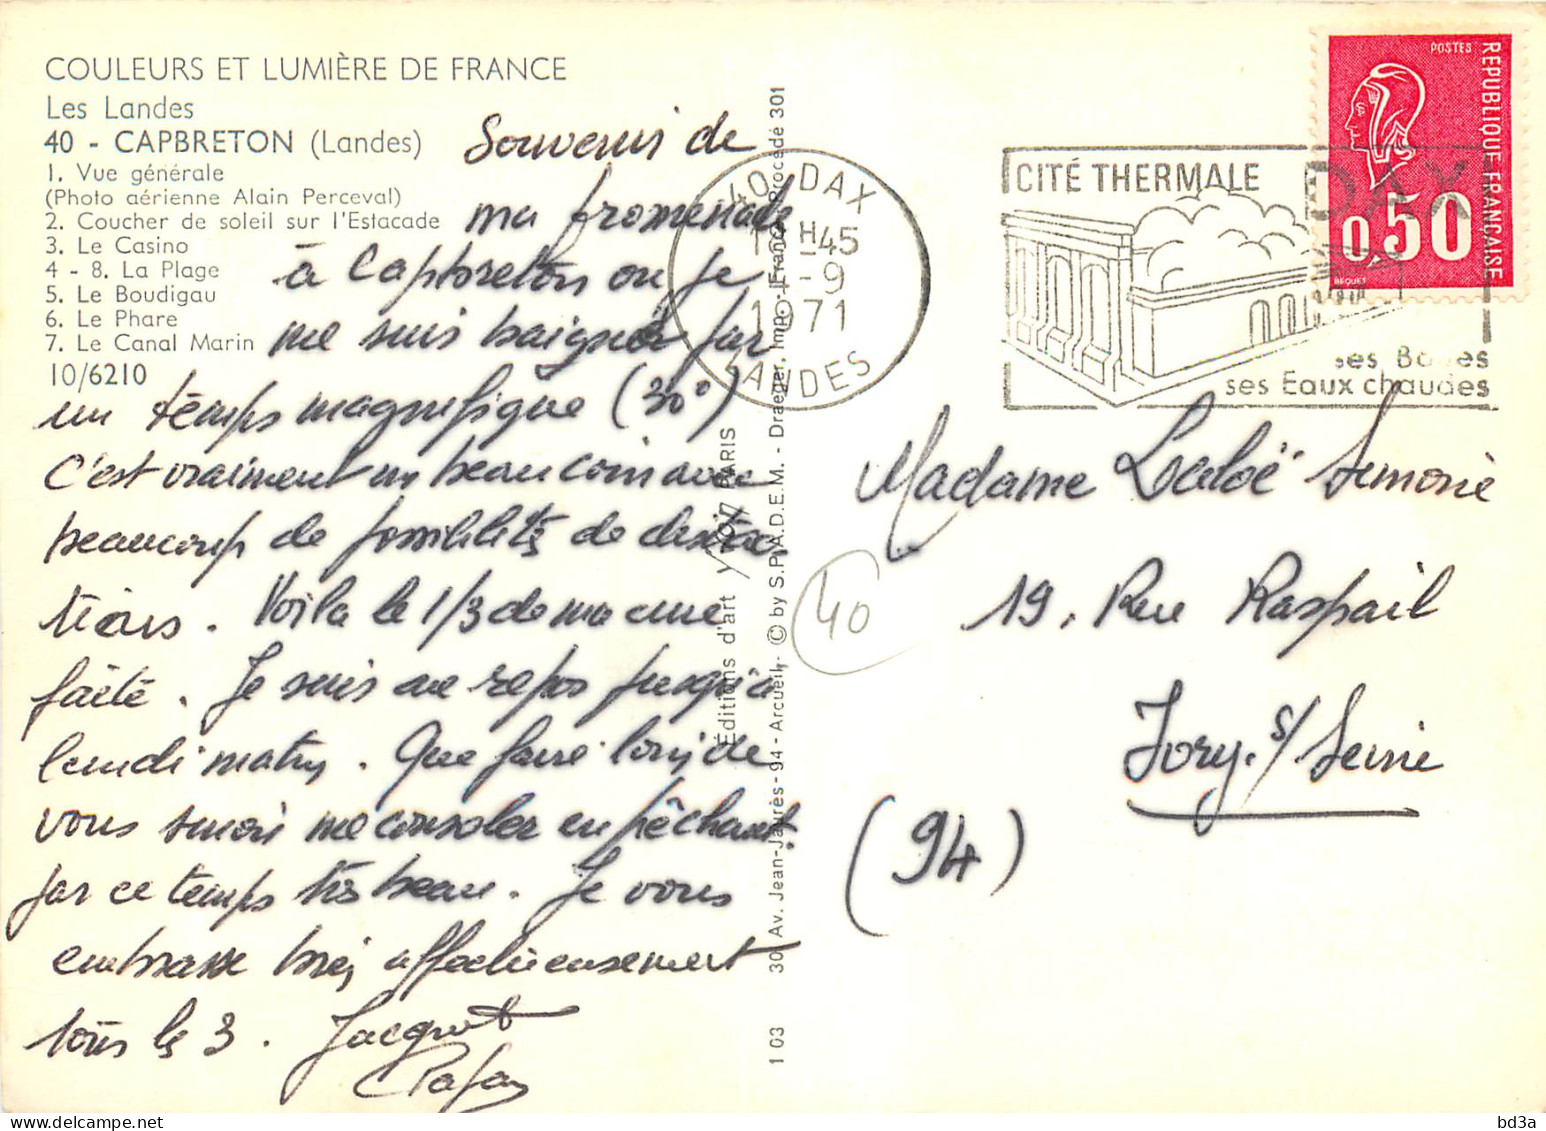 COULEURS ET LUMIÈRE DE FRANCE
Les Landes
40 - CAPBRETON (Landes)
1. Vue générale
(Photo aérienne Alain Perceval)
2. Coucher de soleil sur l'Estacade
3. Le Casino
4 - 8. La Plage
5. Le Boudigau
6. Le Phare
7. Le Canal Marin
10/6210
Souvenir de
ma promenade
à Capbreton ou je
me suis baigner par
un temps magnifique (30°)
C'est vraiment un beau coin avec
beaucoup de possibilités de distrac
tions. Voila le 1/3 de ma cure
faite. Je suis au repos jusqu'a
lundi matin. Que faire loin de
vous sinon me consoler en pêchant
par ce temps très beau. Je vous
embrasse bien affectueusement
tous les 3. Jacquot
Papa
Éditions d'art yvon PARIS
30, Av. Jean-Jaurès - 94 - Arcueil, © by S.P.A.D.E.M. - Draeger, Imp. - France - Procédé 301
1 03
40 DAX
H 45
-9
1971
LANDES
CITÉ THERMALE
DAX
ses Boues
ses Eaux chaudes
POSTES
REPUBLIQUE FRANÇAISE
0,50
BEQUET
40
Madame Simone
19, Rue Raspail
Ivry s/ Seine
(94)
bd3a